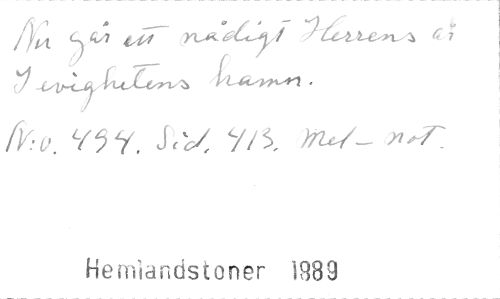 Nu går ett nådigt Herrens år
I evighetens hamn.
N:o. 494. Sid. 413. Mel-not.
Hemlandstoner 1889